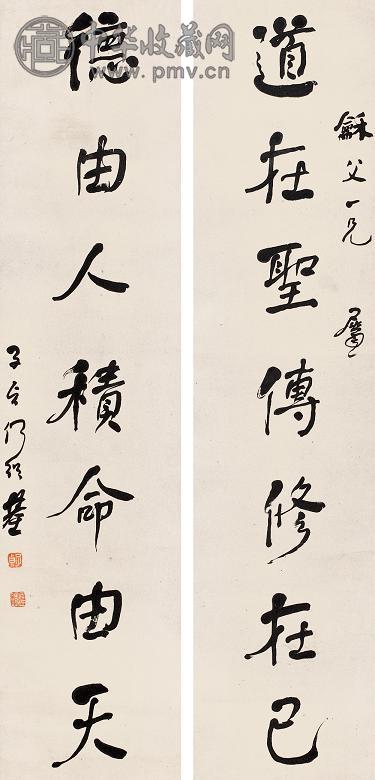 中华收藏网
www.pmv.cn
龢父一兄 屬
道在聖傳修在己
德由人積命由天
子貞何紹基